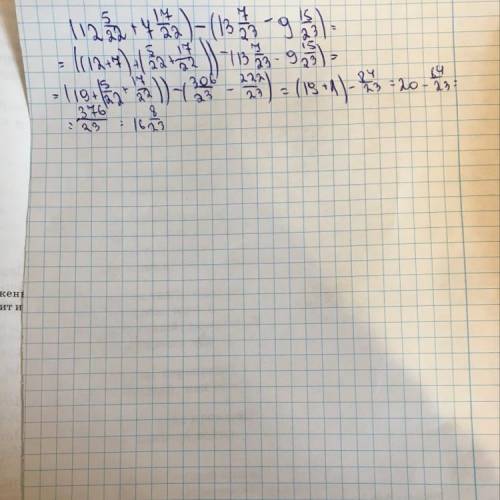 (12 5/22 + 7 17/22) - (13 7/23 - 9 15/23) =
= ((12+7) + (5/22 + 17/22)) - (13 7/23 - 9 15/23) =
= (19 + (5/22 + 17/22)) - (306/23 - 222/23) = (19+1) - 84/23 = 20 - 84/23 =
= 376/23 = 16 8/23
кень
ит и